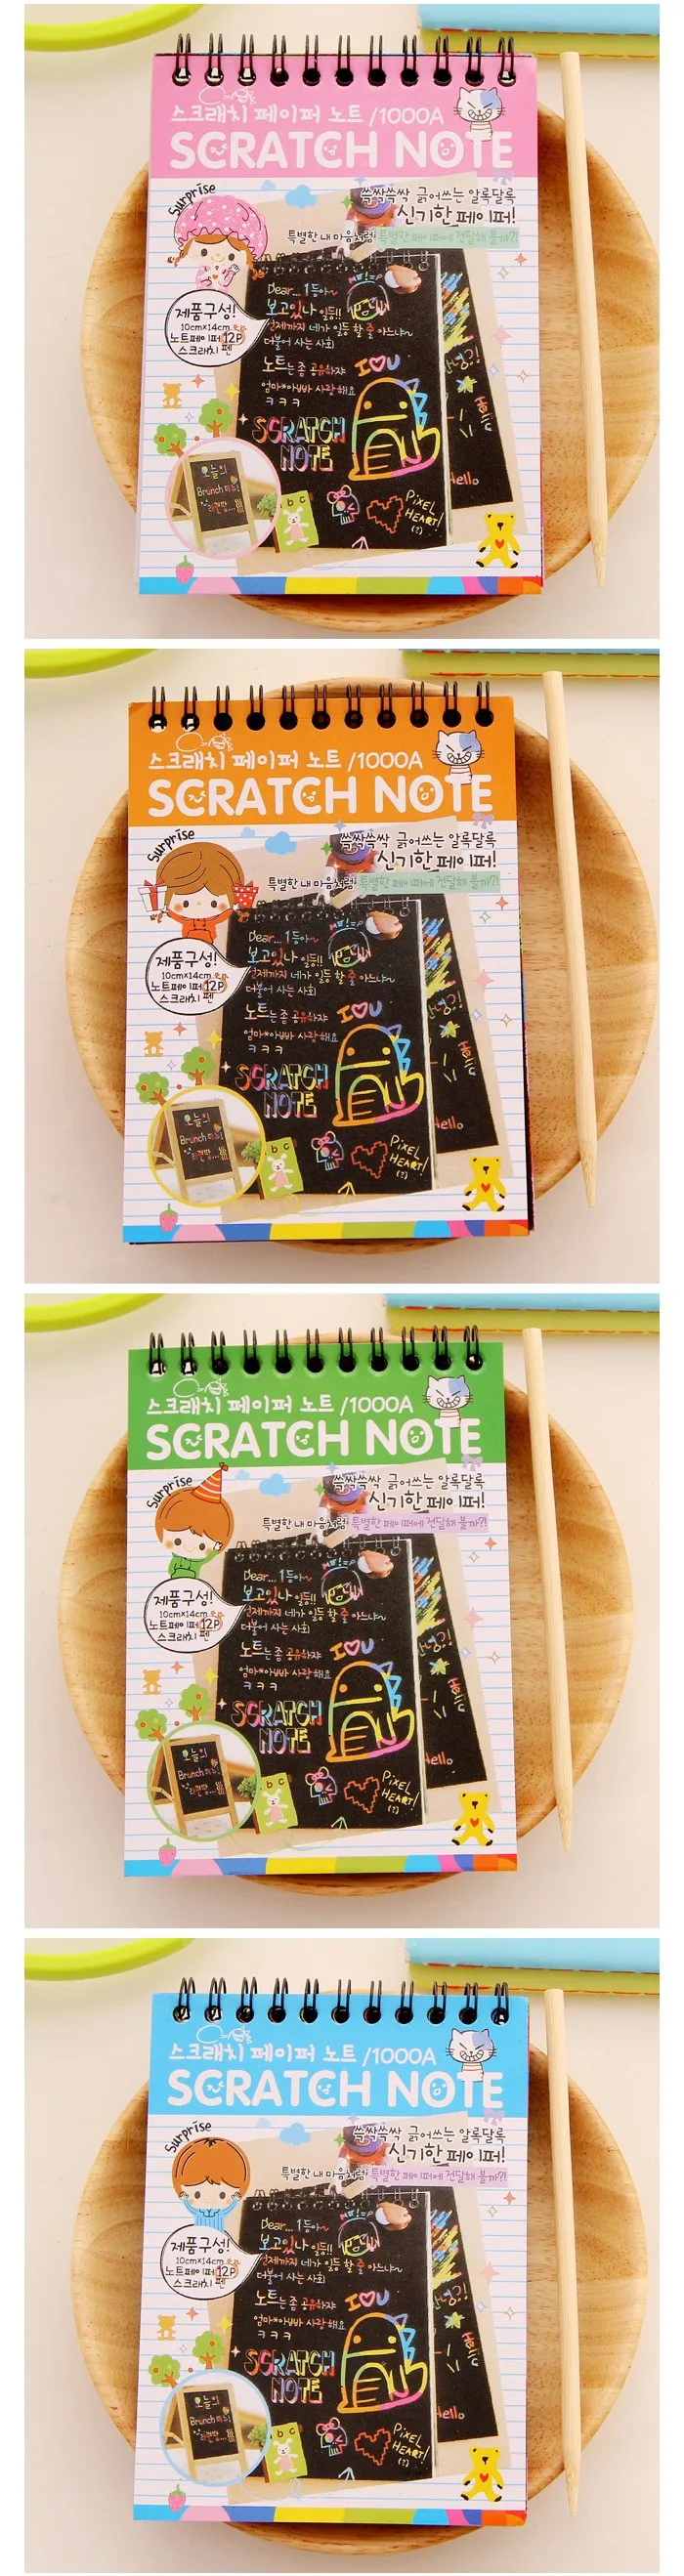 스크래치 페이퍼 노트 /1000A
SCRATCH NOTE
Surprise
쓱싹쓱싹 긁어쓰는 알록달록
신기한 페이퍼!
특별한 내 마음처럼! 특별한 페이퍼에 전달해 볼까?!
제품구성!
10cm×14cm
노트페이퍼 12P
스크래치 펜
Dear... 1등아~
보고있나 일등!!
언제까지 네가 일등 할 줄 아느냐~
더불어 사는 사회
노트는 좀 공유하쟈
엄마*아빠 사랑해요
ㅋㅋㅋ
I U
SCRATCH
NOTE
안녕?!
Hello
Hello
오늘의
Brunch 메뉴!
b c
PiXEL
HEART!
(?)
스크래치 페이퍼 노트 /1000A
SCRATCH NOTE
Surprise
쓱싹쓱싹 긁어쓰는 알록달록
신기한 페이퍼!
특별한 내 마음처럼! 특별한 페이퍼에 전달해 볼까?!
제품구성!
10cm×14cm
노트페이퍼 12P
스크래치 펜
Dear... 1등아~
보고있나 일등!!
언제까지 네가 일등 할 줄 아느냐~
더불어 사는 사회
노트는 좀 공유하쟈
엄마*아빠 사랑해요
ㅋㅋㅋ
I U
SCRATCH
NOTE
안녕?!
Hello
Hello
오늘의
Brunch 메뉴!
b c
PiXEL
HEART!
(?)
스크래치 페이퍼 노트 /1000A
SCRATCH NOTE
Surprise
쓱싹쓱싹 긁어쓰는 알록달록
신기한 페이퍼!
특별한 내 마음처럼! 특별한 페이퍼에 전달해 볼까?!
제품구성!
10cm×14cm
노트페이퍼 12P
스크래치 펜
Dear... 1등아~
보고있나 일등!!
언제까지 네가 일등 할 줄 아느냐~
더불어 사는 사회
노트는 좀 공유하쟈
엄마*아빠 사랑해요
ㅋㅋㅋ
I U
SCRATCH
NOTE
안녕?!
Hello
Hello
오늘의
Brunch 메뉴!
b c
PiXEL
HEART!
(?)
스크래치 페이퍼 노트 /1000A
SCRATCH NOTE
Surprise
쓱싹쓱싹 긁어쓰는 알록달록
신기한 페이퍼!
특별한 내 마음처럼! 특별한 페이퍼에 전달해 볼까?!
제품구성!
10cm×14cm
노트페이퍼 12P
스크래치 펜
Dear... 1등아~
보고있나 일등!!
언제까지 네가 일등 할 줄 아느냐~
더불어 사는 사회
노트는 좀 공유하쟈
엄마*아빠 사랑해요
ㅋㅋㅋ
I U
SCRATCH
NOTE
안녕?!
Hello
Hello
오늘의
Brunch 메뉴!
b c
PiXEL
HEART!
(?)